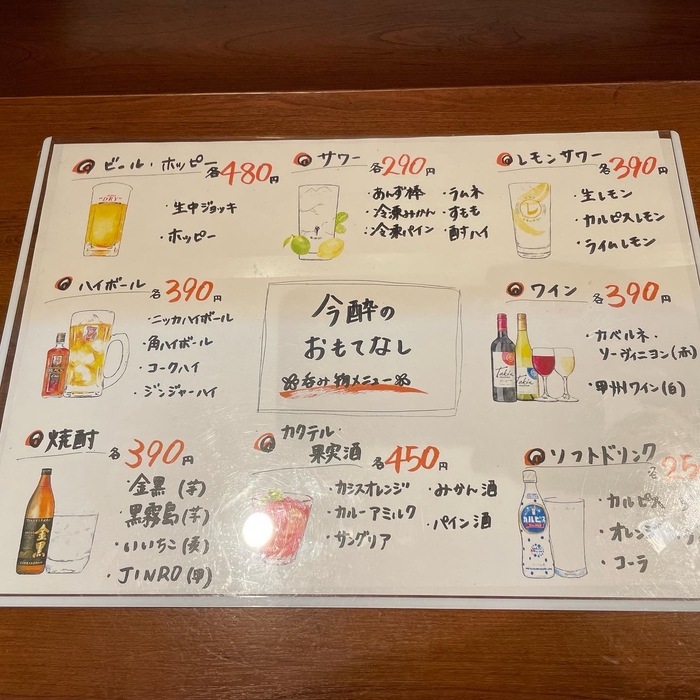 ビール・ホッピー 各480円
・生中ジョッキ
・ホッピー
サワー 各290円
・あんず棒 ・ラムネ
・冷凍みかん ・すもも
・冷凍パイン ・酎ハイ
レモンサワー 各390円
・生レモン
・カルピスレモン
・ライムレモン
ハイボール 各390円
・ニッカハイボール
・角ハイボール
・コークハイ
・ジンジャーハイ
今酔の
おもてなし
呑み物メニュー
ワイン 各390円
・カベルネ・
ソーヴィニヨン(赤)
・甲州ワイン(白)
焼酎 各390円
・金黒(芋)
・黒霧島(芋)
・いいちこ(麦)
・JINRO(甲)
カクテル・
果実酒 各450円
・カシスオレンジ ・みかん酒
・カルーアミルク ・パイン酒
・サングリア
ソフトドリンク
各25
・カルピス
・オレン
・コーラ
DRY
金黒
カルピス